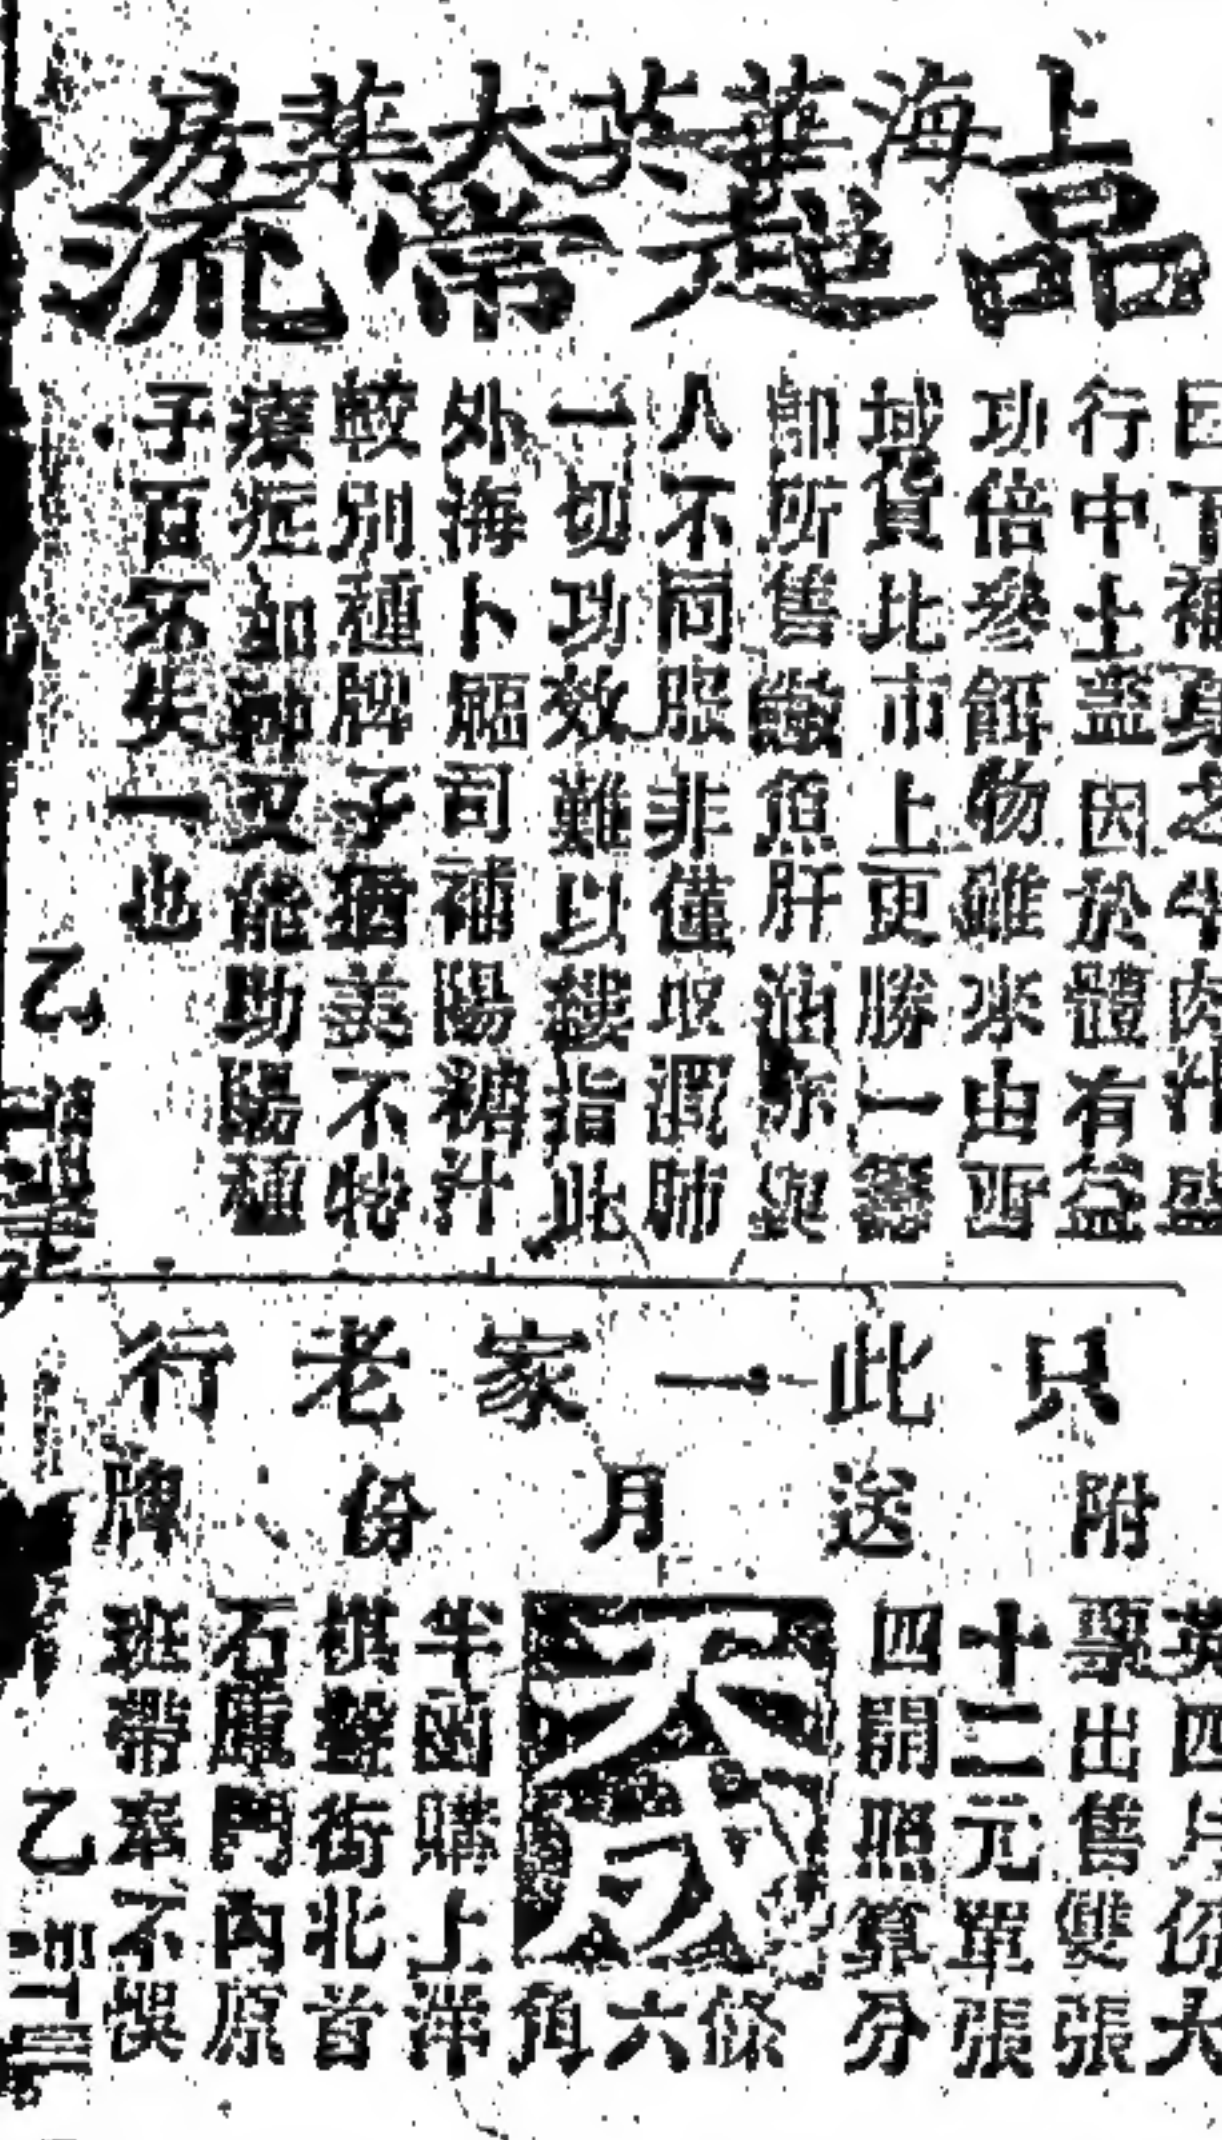 上海華英大藥房
品超常流
目下補身之牛肉汁盛
行中土蓋因於體有益
功倍參餌物雖來由西
域貨比市上更勝一籌
即所售鰵魚肝油亦與
人不同服非僅取潤肺
一切功效難以縷指此
外海卜艫司補陽精汁
較別種牌子猶美不特
療症如神又能助陽種
子百不失一也
乙
只此一家老行
附送月份牌
英四片份大
票出售雙張
十二元單張
四開照算分
天成
條六角
半函購上洋
棋盤街北首
石庫門內原
班帶奉不悞
乙